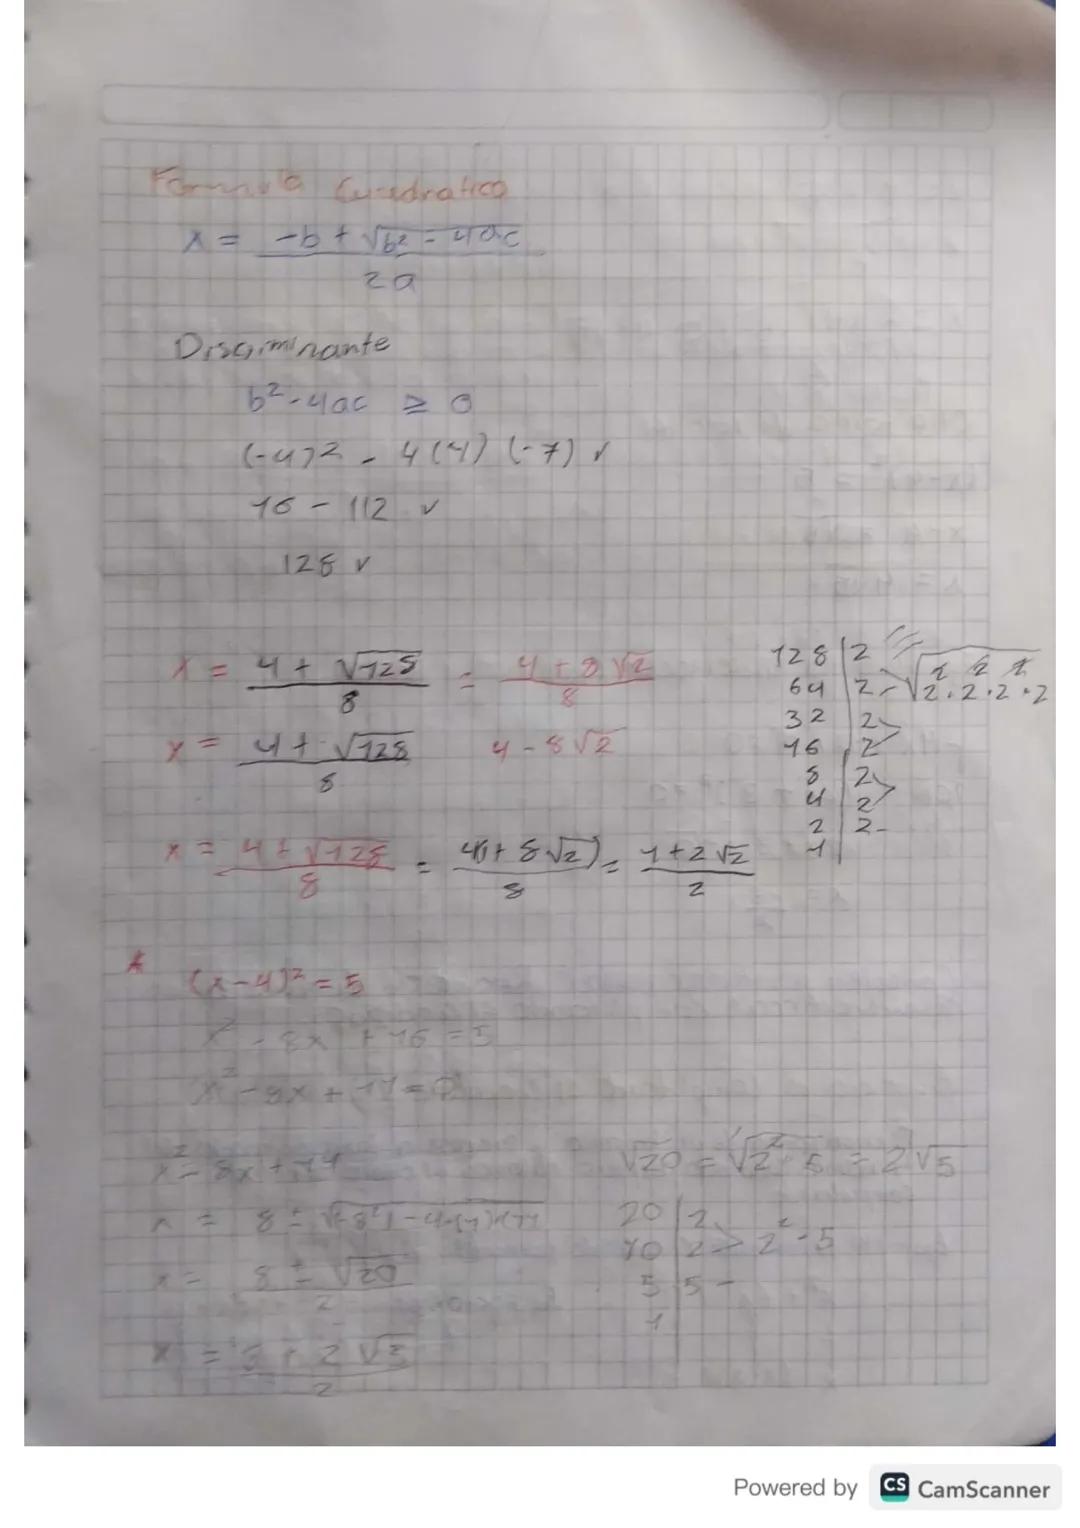 Formula Cuadratica
x = -b + √b² - 4ac
2a
Discriminante
b² - 4ac ≥ 0
(-4)² - 4(4)(-7) ✓
16 - 112 ✓
128 ✓
x = 4 + √128 = 4 + 8√2
8 8
x = 4 + √128 4 - 8√2
8
x = 4 ± √128 = 4(1 + 8√2) = 1 + 2√2
8 8 2
128 | 2
64 | 2 √2² · 2² · 2² · 2
32 | 2
16 | 2
8 | 2
4 | 2
2 | 2
1
(x-4)² = 5
x² - 8x + 16 = 5
x² - 8x + 11 = 0
x² - 8x + 11
x = 8 ±
x = 8 ± √20
2
x = 8 + 2√5
2
√20 = √2² · 5 = 2√5
20 | 2
10 | 2 > 2² · 5
5 | 5
1
Powered by CS CamScanner